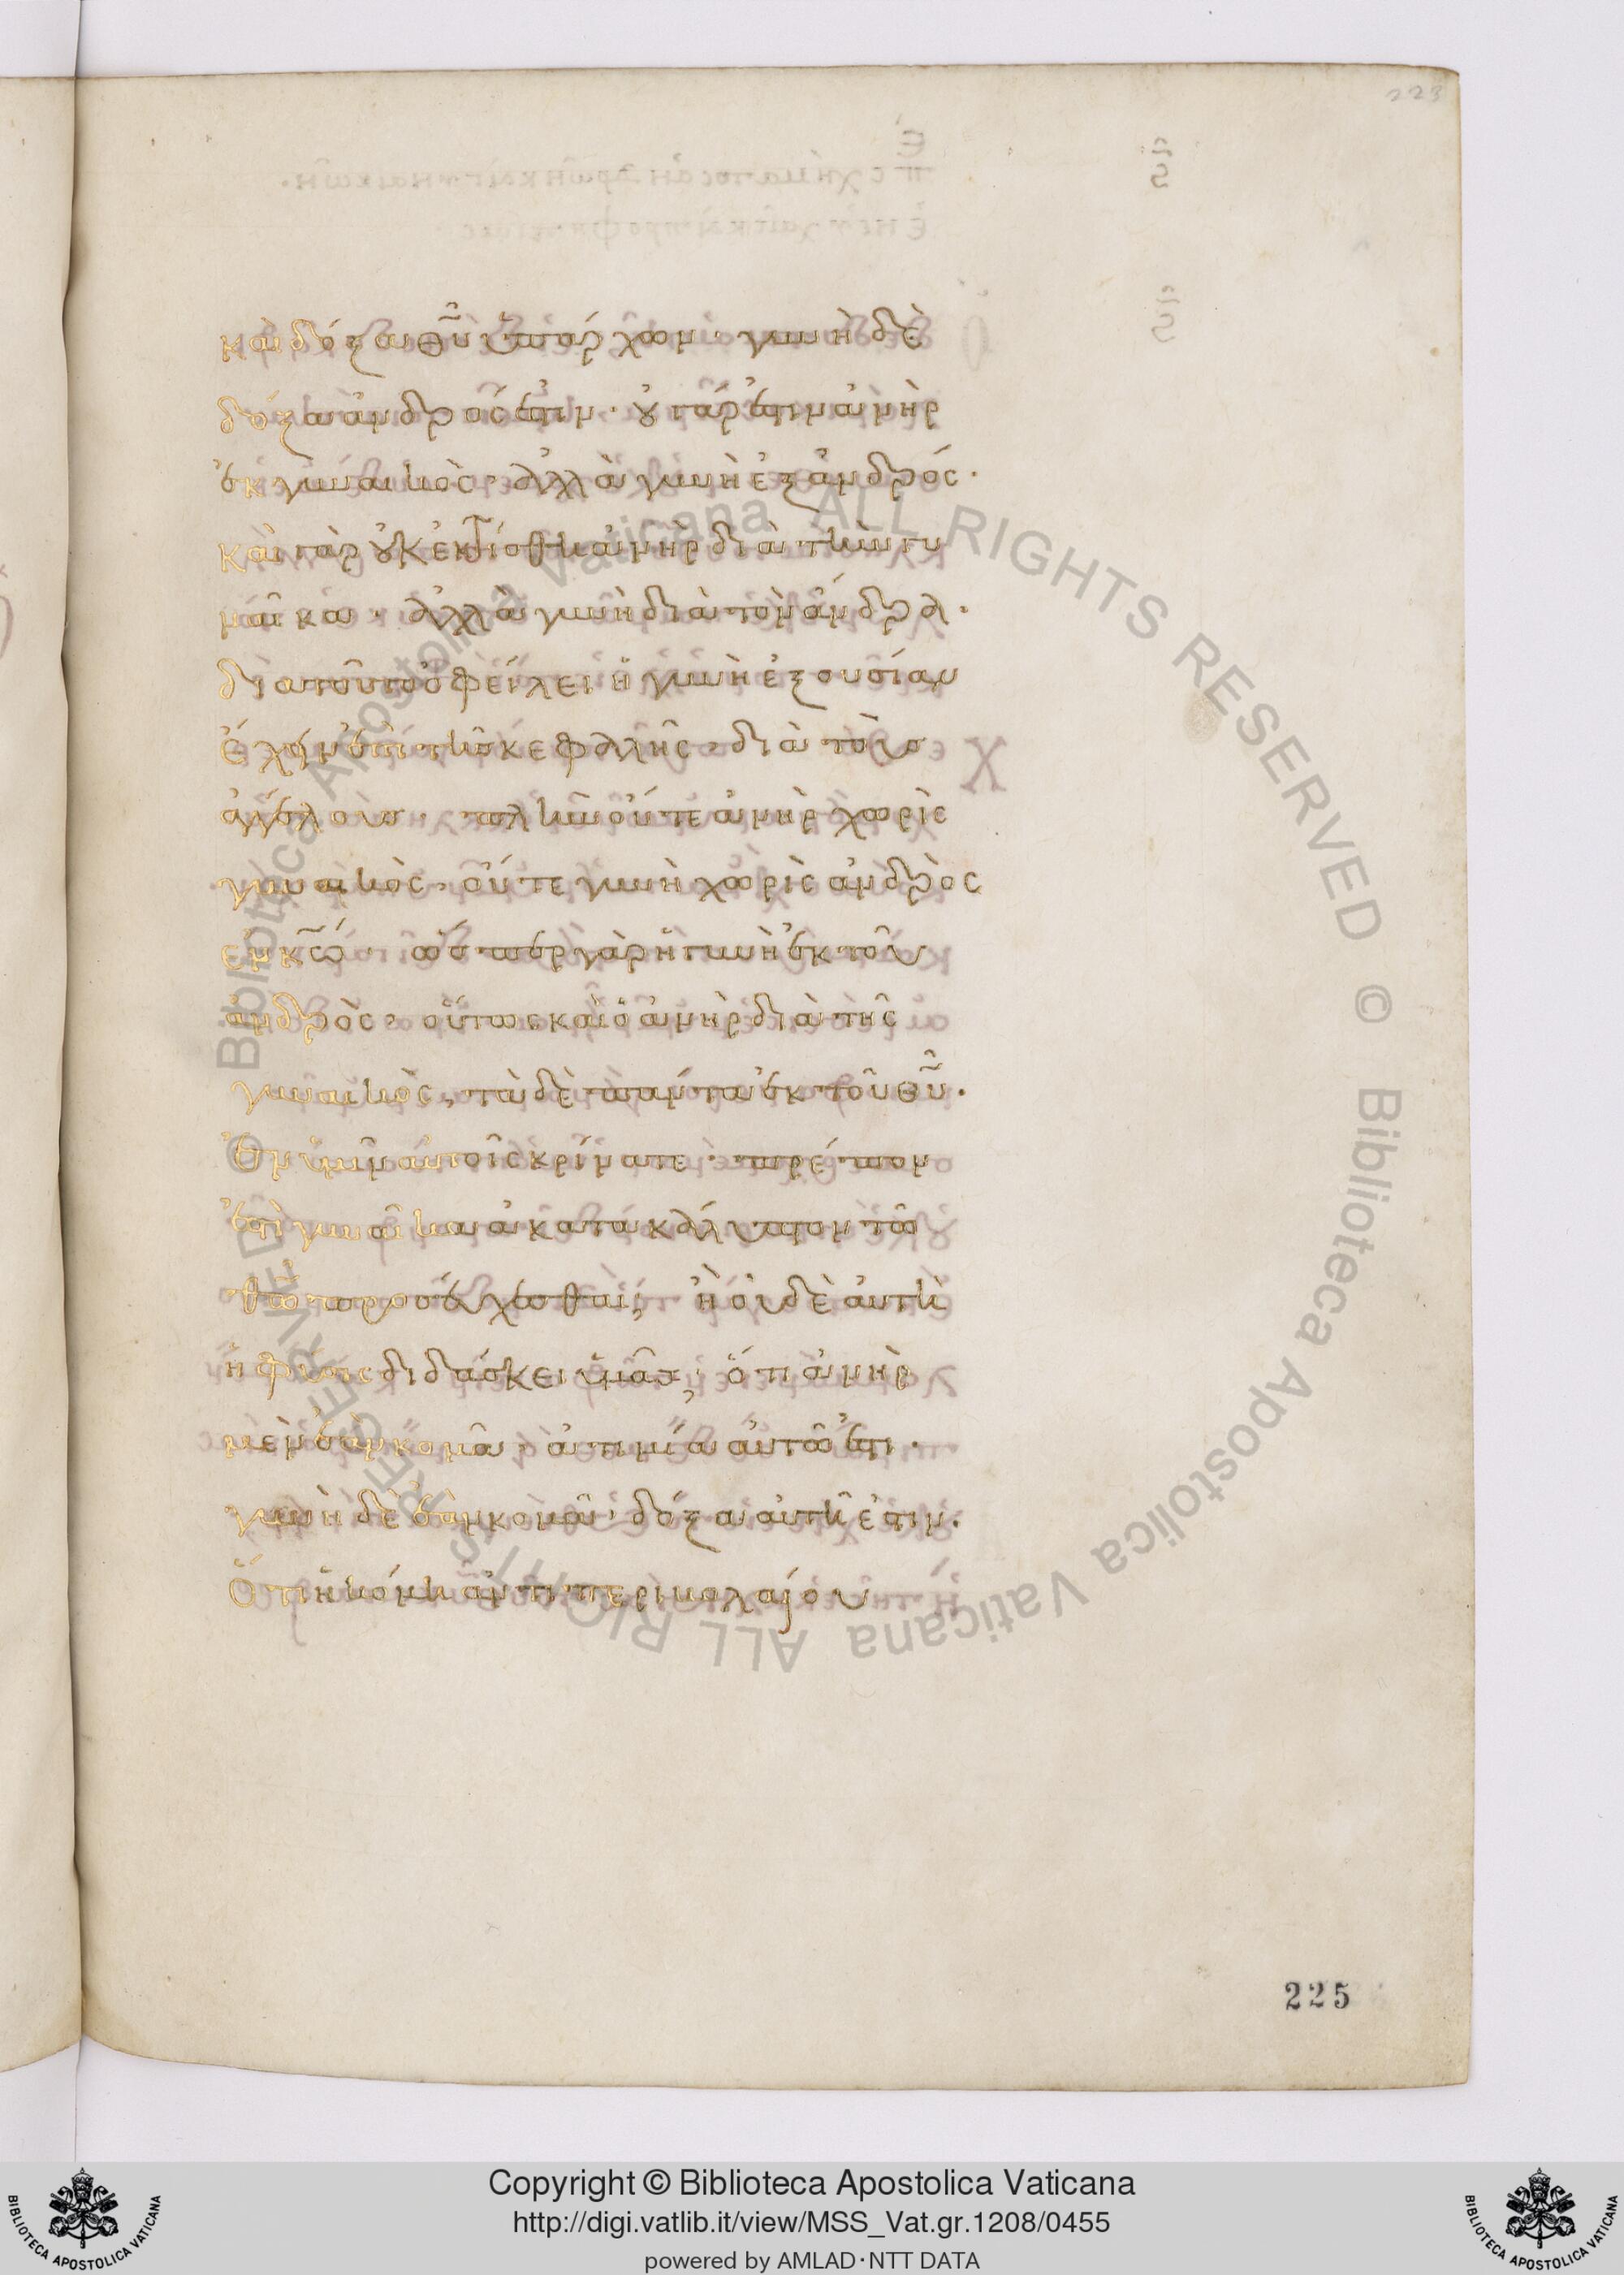 223
καὶ δόξα θῦ ὑπάρχων· γυνὴ δὲ
δόξα ἀνδρός ἐστιν· οὐ γάρ ἐστιν ἀνὴρ
ἐκ γυναικὸς· ἀλλὰ γυνὴ ἐξ ἀνδρός·
καὶ γὰρ οὐκ ἐκτίσθη ἀνὴρ διὰ τὴν γυ
ναῖκα· ἀλλὰ γυνὴ διὰ τὸν ἄνδρα·
διὰ τοῦτο ὀφείλει ἡ γυνὴ ἐξουσίαν
ἔχειν ἐπὶ τῆς κεφαλῆς· διὰ τοὺς
ἀγγέλους· πλὴν οὔτε ἀνὴρ χωρὶς
γυναικὸς· οὔτε γυνὴ χωρὶς ἀνδρὸς
ἐν κω· ὥσπερ γὰρ ἡ γυνὴ ἐκ τοῦ
ἀνδρὸς· οὕτως καὶ ὁ ἀνὴρ διὰ τῆς
γυναικὸς, τὰ δὲ πάντα ἐκ τοῦ θῦ·
Ἐν ὑμῖν αὐτοῖς κρίνατε· πρέπον
ἐστὶ γυναῖκα ἀκατακάλυπτον τῶ
θῶ προσεύχεσθαι; ἢ οὐδὲ αὐτὴ
ἡ φύσις διδάσκει ὑμᾶς, ὅτι ἀνὴρ
μὲν ἐὰν κομᾶ, ἀτιμία αὐτῶ ἐστι·
γυνὴ δὲ ἐὰν κομᾶ· δόξα αὐτῆ ἐστιν·
Ὅτι ἡ κόμη ἀντὶ περιβολαίου
225
© Biblioteca Apostolica Vaticana ALL RIGHTS RESERVED © Biblioteca Apostolica Vaticana ALL RIGHTS RESERVED
Copyright © Biblioteca Apostolica Vaticana
http://digi.vatlib.it/view/MSS_Vat.gr.1208/0455
powered by AMLAD·NTT DATA
BIBLIOTECA APOSTOLICA VATICANA
BIBLIOTECA APOSTOLICA VATICANA